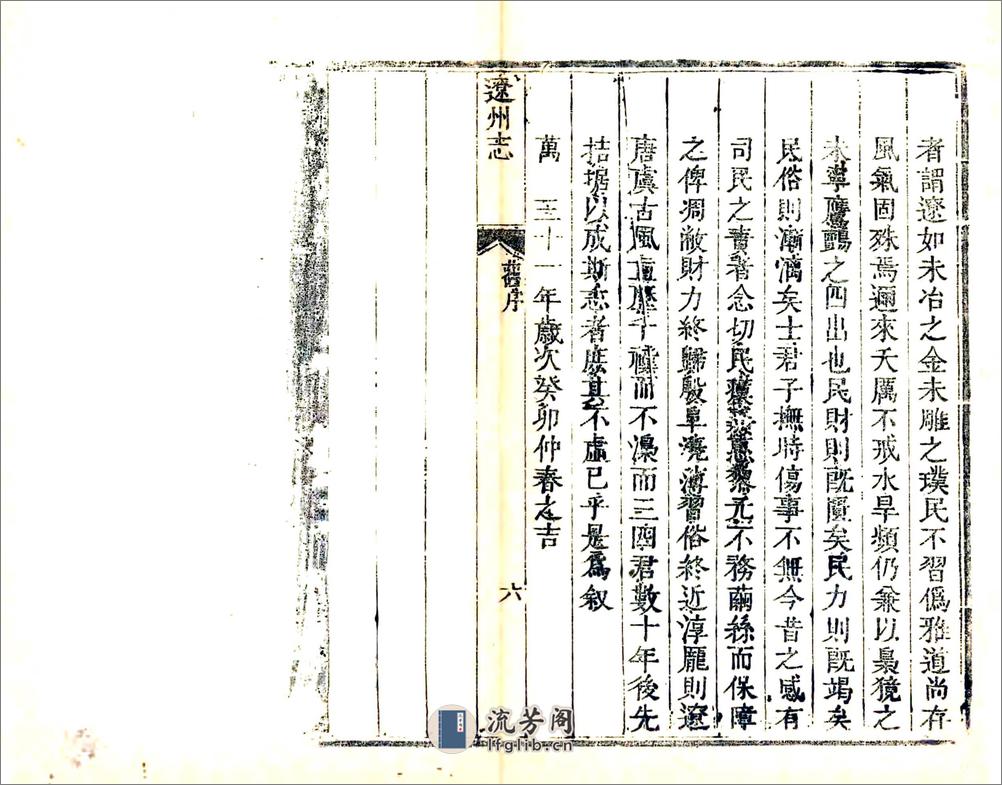 者謂遼如未冶之金未雕之璞民不習僞雅道尚存
風氣固殊焉邇來天厲不戒水旱頻仍兼以梟獍之
未寧鷹鸇之四出也民財則既匱矣民力則既竭矣
民俗則漸漓矣士君子撫時傷事不無今昔之感有
司民之責者念切民瘼元不務繭絲而保障
之俾凋敝財力終歸殷阜澆漓習俗終近淳龐則遼
唐虞古風直歷千禩而不澡而三四君數十年後先
拮据以成斯志者庶其不虛已乎是爲叙
萬 三十一年歲次癸卯仲春之吉
遼州志
舊序
六
流芳阁
lfglib.cn